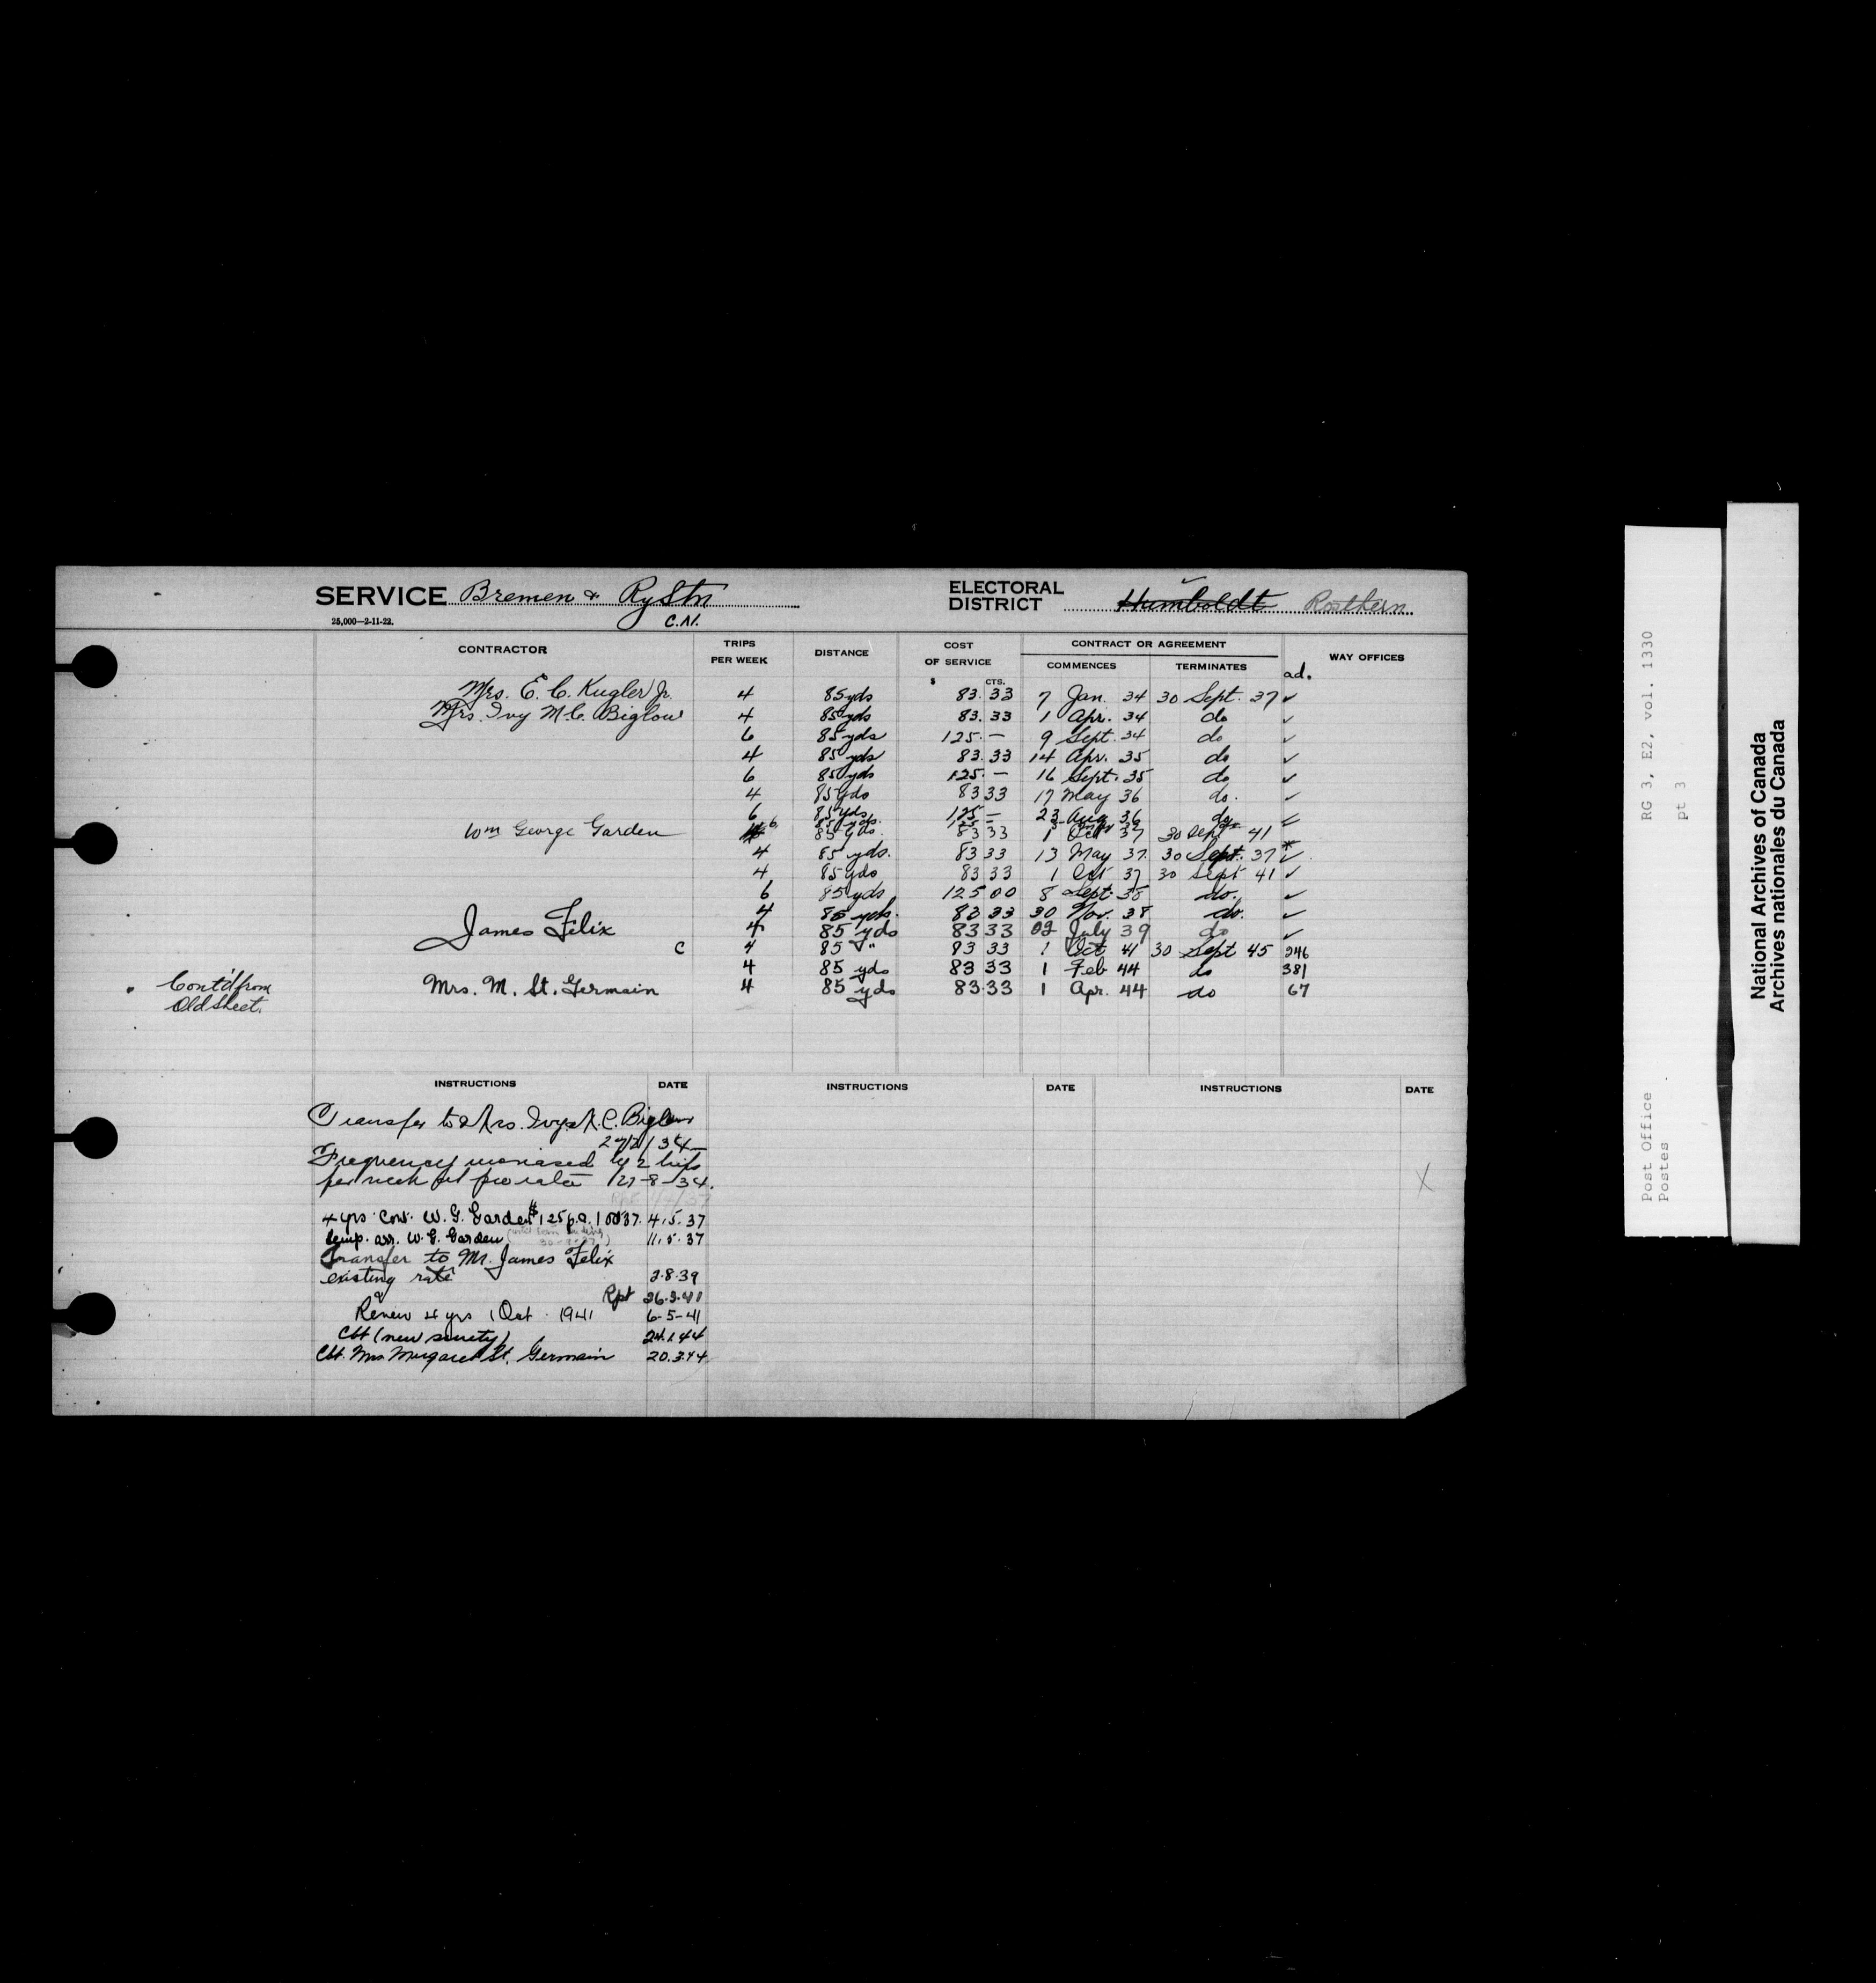 SERVICE Bremen & Ry Stn
25,000—2-11-22.
C.N.
ELECTORAL DISTRICT Humboldt Rosthern
CONTRACTOR TRIPS PER WEEK DISTANCE COST OF SERVICE CONTRACT OR AGREEMENT WAY OFFICES
COMMENCES TERMINATES
$ CTS. ad.
Mrs. E. C. Kugler Jr. 4 85 yds 83.33 7 Jan. 34 30 Sept. 37 ✓
Mrs. Ivy M.C. Biglow 4 85 yds 83.33 1 Apr. 34 do ✓
6 85 yds 125.— 9 Sept. 34 do ✓
4 85 yds 83 33 14 Apr. 35 do ✓
6 85 yds 125.— 16 Sept. 35 do ✓
4 85 yds 83 33 17 May 36 do. ✓
6 85 yds. 125 — 23 Aug 36 do ✓
6 85 yds. 125 —
Wm George Garden 85 yds. 83 33 1 Oct 37 30 Sept 41
4 85 yds. 83 33 13 May 37. 30 Sept. 37 ✓
4 85 yds 83 33 1 Oct 37 30 Sept 41 ✓
6 85 yds 125 00 8 Sept. 38 do. ✓
4 85 yds. 83 33 30 Nov. 38 do. ✓
James Felix 4 85 yds 83 33 02 July 39 do ✓
C 4 85 " 83 33 1 Oct 41 30 Sept 45 246
4 85 yds 83 33 1 Feb 44 do 381
Cont'd from
Old sheet.
Mrs. M. St. Germain 4 85 yds 83.33 1 Apr. 44 do 67
INSTRUCTIONS DATE INSTRUCTIONS DATE INSTRUCTIONS DATE
Transfer to Mrs. Ivy M. C. Biglow
27/2/34
Frequency increased by 2 trips
per week at pro rata 27-8-34.
4 yrs. Con. W. G. Garden $125 p.a. 1 Oct 37. 4.5.37
temp. arr. W. G. Garden 11.5.37
Transfer to Mr. James Felix
existing rate 2.8.39
Rpt 26.3.41
Renew 4 yrs 1 Oct. 1941 6-5-41
Ctt (new surety) 24.1.44
Ctt. Mrs Margaret St. Germain 20.3.44
X
RG 3, E2, vol. 1330
pt 3
Post Office
Postes
National Archives of Canada
Archives nationales du Canada